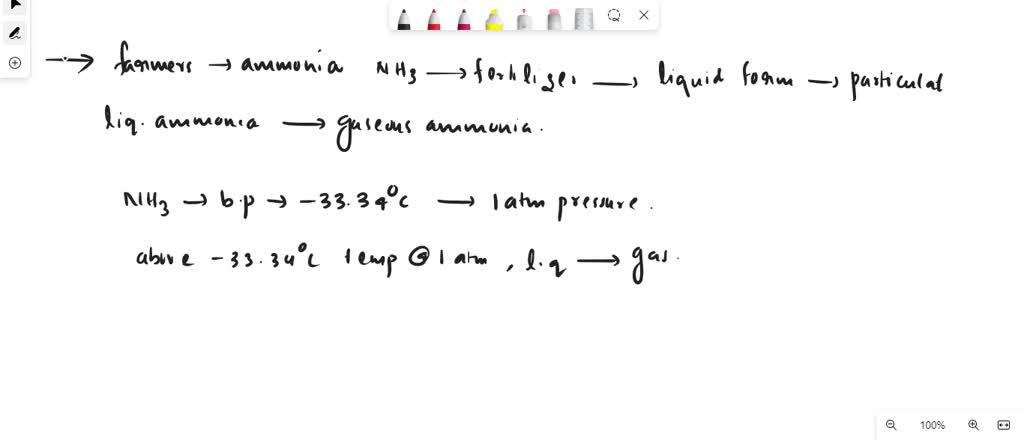 → farmers → ammonia NH3 → fertilizer → liquid form → particular
liq. ammonia → gaseous ammonia.
NH3 → b.p → -33.34°C → 1 atm pressure.
above -33.34°C temp @ 1 atm, liq → gas.
100%